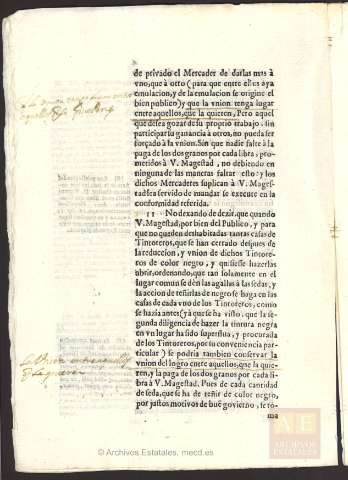 de privado el Mercader de darlas mas à
vno, que à otro (para que entre ellos aya
emulacion, y de la emulacion se origine el
bien publico) y que la vnion tenga lugar
entre aquellos, que la quieren, Pero aquel
que desea gozar de su proprio trabajo, sin
participar su ganancia à otros, no pueda ser
forçado à la vnion. Sin que nadie falte à la
paga de los dos granos por cada libra, pro-
metidos à V. Magestad, no debiendo en
ninguna de las maneras faltar esto: y los
dichos Mercaderes suplican à V. Mages-
tad sea servido de mandar se execute en la
conformidad referida.
11 No dexando de dezir, que quando
V. Magestad, por bien del Publico, y para
que no queden deshabitadas tantas casas de
Tintoreros, que se han cerrado despues de
la reduccion, y vnion de dichos Tintore-
ros de color negro, y quisiesse hazerlas
abrir, ordenando, que tan solamente en el
lugar comun se dèn las agallas à las sedas, y
la accion de teñirlas de negro se haga en las
casas de cada vno de los Tintoreros, como
se hazia antes (yà que se ha visto, que la se-
gunda diligencia de hazer la tintura negra
en vn lugar ha sido superflua, y procurada
de los Tintoreros, por su conveniencia par-
ticular) se podria tambien conservar la
vnion del logro entre aquellos, que la quie-
ren, y la paga de los dos granos por cada li-
bra à V. Magestad. Pues de cada cantidad
de seda, que se ha de teñir de color negro,
por justos motivos de buē govierno, se to-
ma
AE
ARCHIVOS
ESTATALES
© Archivos Estatales, mecd.es